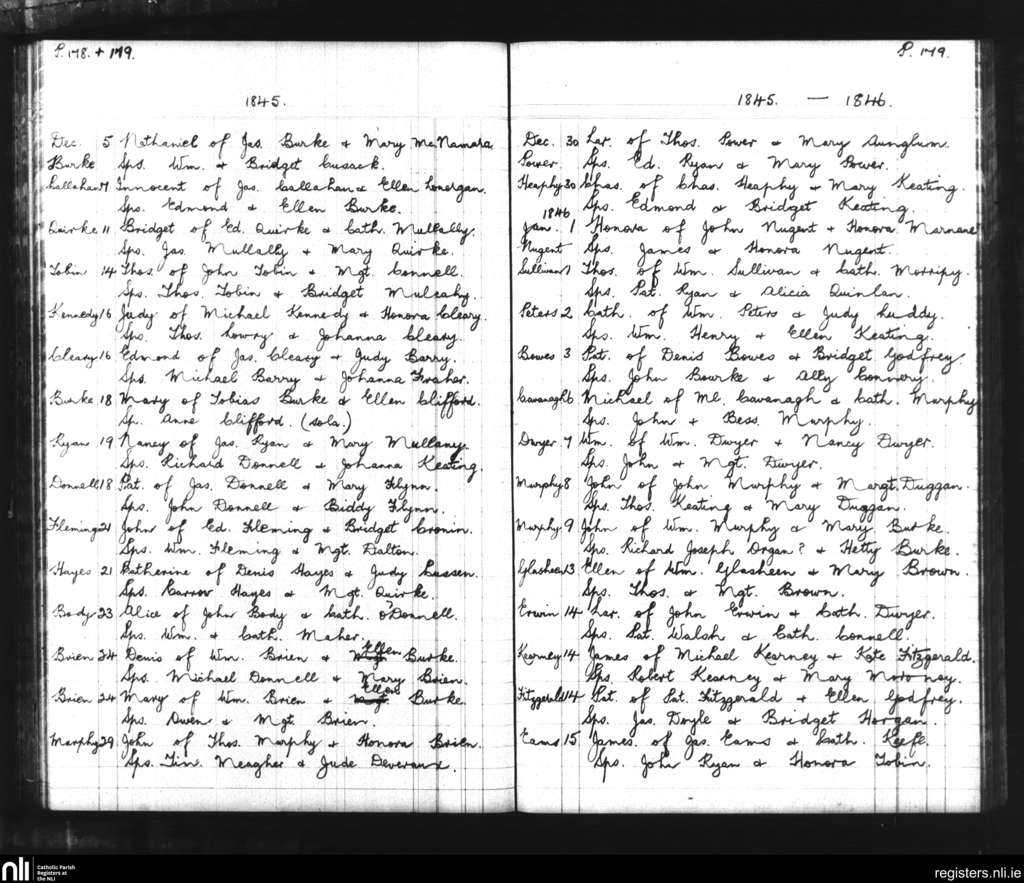 P. 178. + 179.
1845.
Dec. 5 Nathaniel of Jas. Burke & Mary McNamara
Burke Sps. Wm. & Bridget Cusack.
Callahan 7 Innocent of Jas. Callahan & Ellen Lonergan.
Sps. Edmond & Ellen Burke.
Quirke 11 Bridget of Ed. Quirke & Cath. Mullally.
Sps. Jas. Mullally & Mary Quirke.
Tobin 14 Thos. of John Tobin & Mgt. Connell.
Sps. Thos. Tobin & Bridget Mulcahy.
Kennedy 16 Judy of Michael Kennedy & Honora Cleary.
Sps. Thos. Lowry & Johanna Cleary.
Cleary 16 Edmond of Jas. Cleary & Judy Barry.
Sps. Michael Barry & Johanna Fraher.
Burke 18 Mary of Tobias Burke & Ellen Clifford.
Sp. Anne Clifford. (sola.)
Ryan 19 Nancy of Jas. Ryan & Mary Mullaney.
Sps. Richard Donnell & Johanna Keating.
Donnell 18 Pat. of Jas. Donnell & Mary Flynn.
Sps. John Donnell & Biddy Flynn.
Fleming 21 John of Ed. Fleming & Bridget Cronin.
Sps. Wm. Fleming & Mgt. Dalton.
Hayes 21 Catherine of Denis Hayes & Judy
Sps. Hayes & Mgt. Quirke.
Body 23 Alice of John Body & Cath. O'Donnell.
Sps. Wm. & Cath. Maher.
Brien 24 Denis of Wm. Brien & Ellen Burke.
Sps. Michael Donnell & Mary Brien.
Brien 24 Mary of Wm. Brien & Ellen Burke.
Sps. Owen & Mgt. Brien.
Murphy 29 John of Thos. Murphy & Honora Brien.
Sps. Tim. Meagher & Jude Deveraux.
P. 179.
1845. — 1846.
Dec. 30 Lar. of Thos. Power & Mary
Power Sps. Ed. Ryan & Mary Power.
Heaphy 30 Chas. of Chas. Heaphy & Mary Keating.
Sps. Edmond & Bridget Keating.
1846
Jan. 1 Honora of John Nugent & Honora Marnane
Nugent Sps. James & Honora Nugent.
Sullivan 1 Thos. of Wm. Sullivan & Cath.
Sps. Pat. Ryan & Alicia Quinlan.
Peters 2 Cath. of Wm. Peters & Judy Luddy.
Sps. Wm. Henry & Ellen Keating.
Bowes 3 Pat. of Denis Bowes & Bridget Godfrey.
Sps. John Bourke & Ally Connery.
Cavanagh 6 Michael of Ml. Cavanagh & Cath. Murphy
Sps. John & Bess. Murphy.
Dwyer 7 Wm. of Wm. Dwyer & Nancy Dwyer.
Sps. John & Mgt. Dwyer.
Murphy 8 John of John Murphy & Margt. Duggan.
Sps. Thos. Keating & Mary Duggan.
Murphy 9 John of Wm. Murphy & Mary Burke.
Sps. Richard Joseph Organ? & Hetty Burke.
Glasheen 13 Ellen of Wm. Glasheen & Mary Brown.
Sps. Thos. & Mgt. Brown.
Erwin 14 Lar. of John Erwin & Cath. Dwyer.
Sps. Pat. Walsh & Cath. Connell.
Kearney 14 James of Michael Kearney & Kate Fitzgerald.
Sps. Robert Kearney & Mary Moroney.
Fitzgerald 14 Pat. of Pat. Fitzgerald & Ellen Godfrey.
Sps. Jas. Doyle & Bridget Horgan.
Eams 15 James of Jas. Eams & Cath. Keefe.
Sps. John Ryan & Honora Tobin.
nli Catholic Parish
Registers at
the NLI
registers.nli.ie